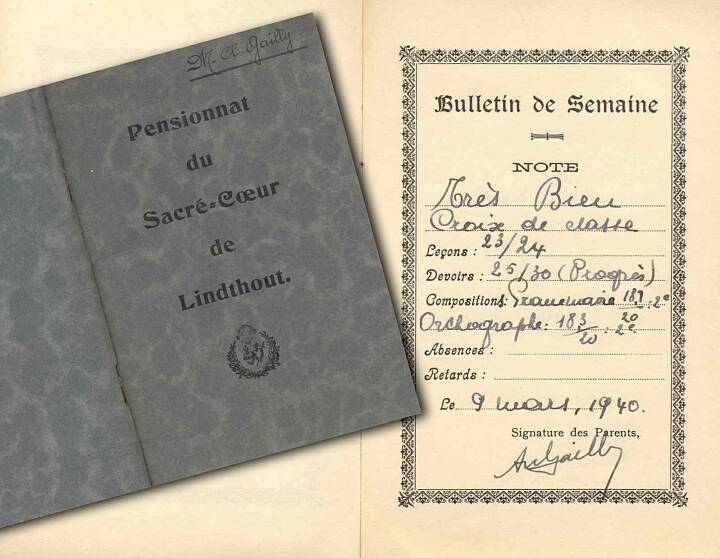 M. Cl. Gailly
Pensionnat
du
Sacré-Cœur
de
Lindthout.
Bulletin de Semaine
NOTE
Très Bien
Croix de classe
Leçons : 23/24
Devoirs : 25/30 (Progrès)
Compositions: Grammaire 18,7/20 : 2e
Orthographe : 18,3/20 : 2e
Absences :
Retards :
Le 9 mars, 1940.
Signature des Parents,
Gailly